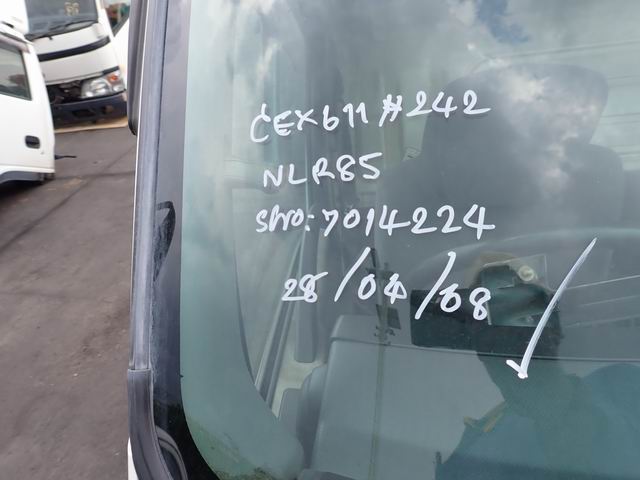 CEX611 #242
NLR85
S/no: 7014224
28/04/08